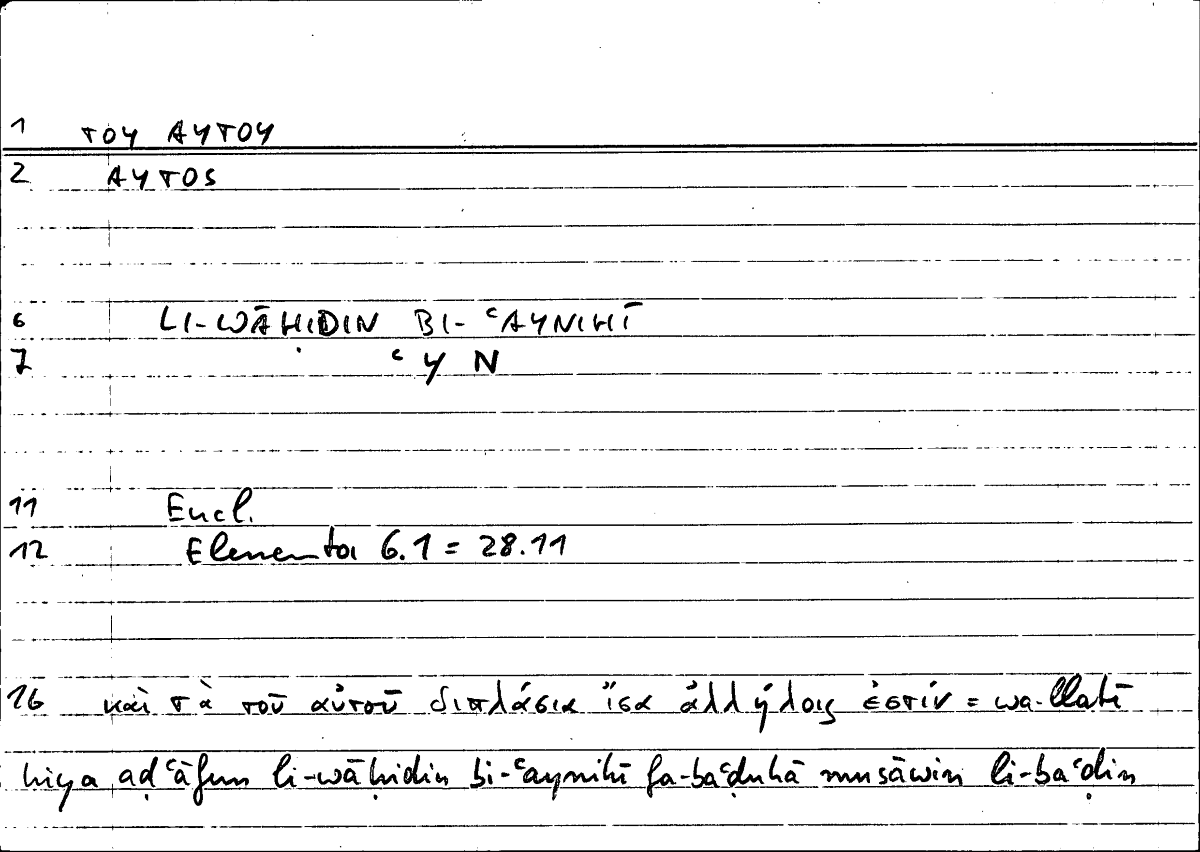 1 ΤΟΥ ΑΥΤΟΥ
2 ΑΥΤΟS
6 LI-WĀḤIDIN BI-ʿAYNIHĪ
7 ʿYN
11 Eucl.
12 Elementa 6.1 = 28.11
16 καὶ τὰ τοῦ αὐτοῦ διπλάσια ἴσα ἀλλήλοις ἐστίν = wa-llatī
hiya aḍʿāfun li-wāḥidin bi-ʿaynihī fa-baʿḍuhā musāwin li-baʿḍin